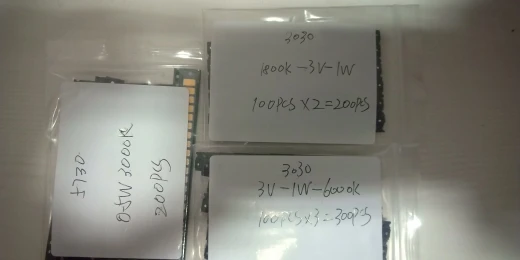 3030
1800K-3V-1W
100PCS×2=200PCS
5730
0.5W 3000K
200PCS
3030
3V-1W-6000K
100PCS×3=300PCS